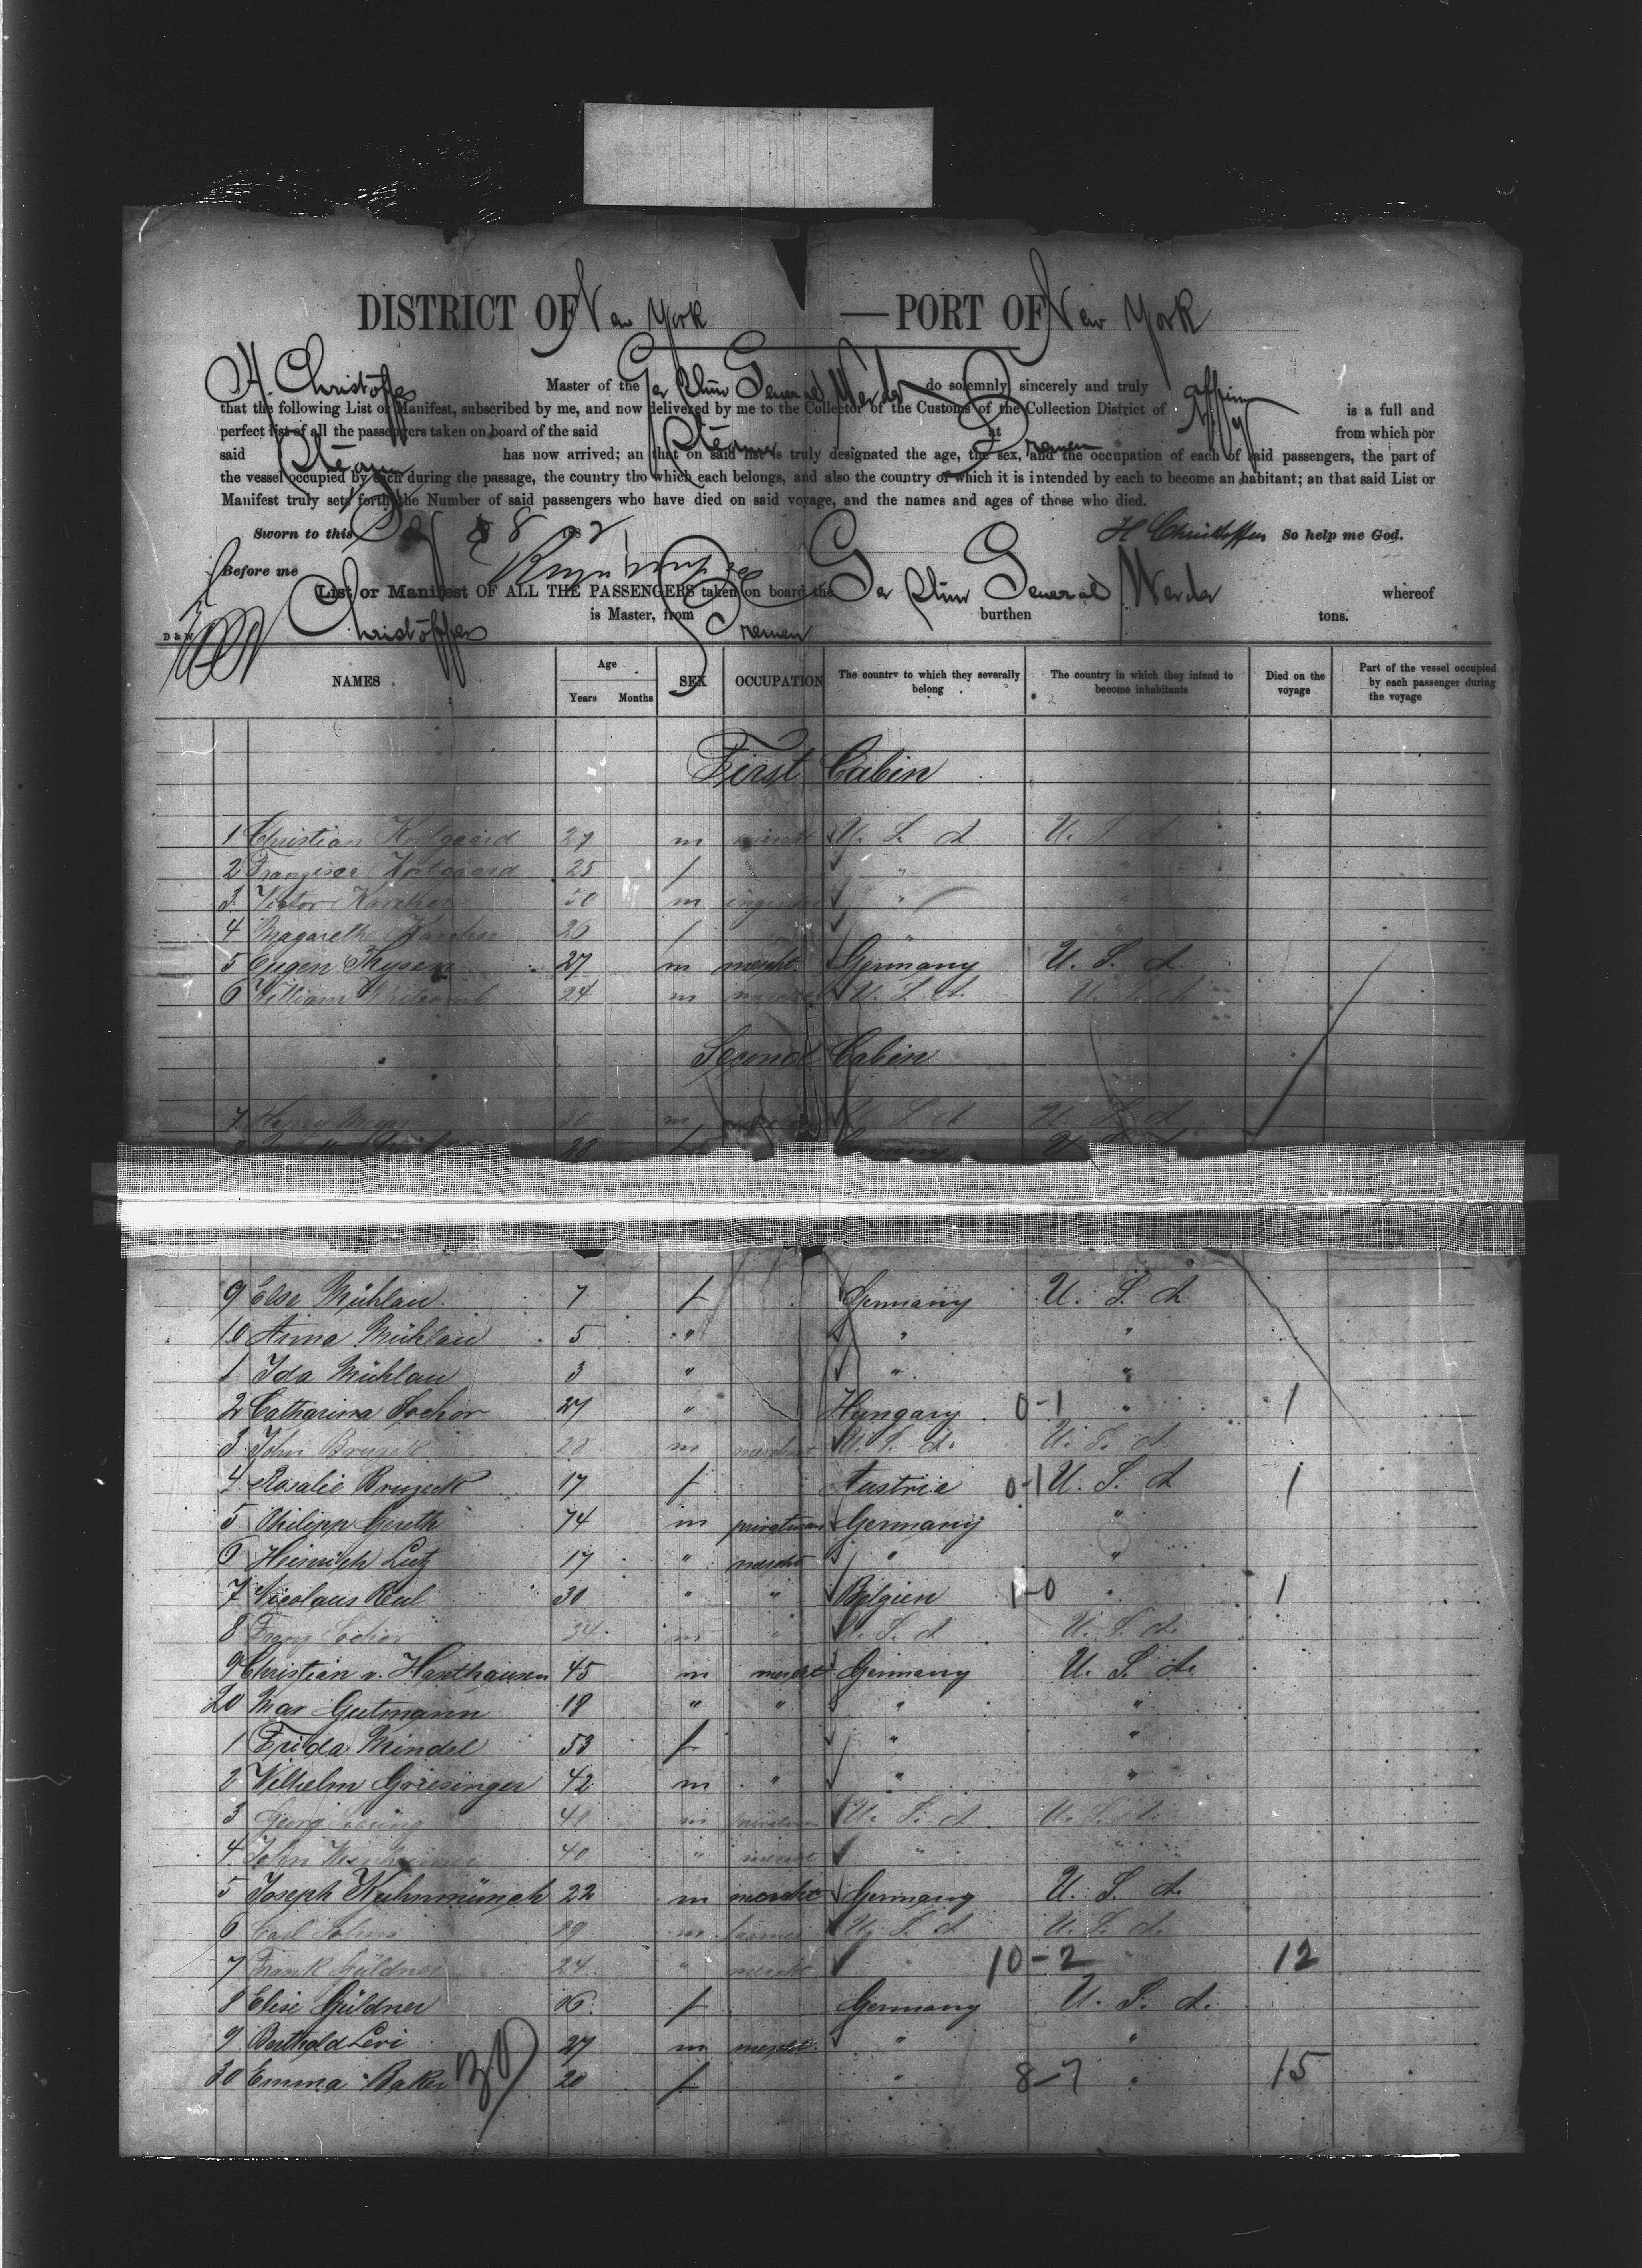 DISTRICT OF New York — PORT OF New York
H. Christoffers Master of the Ger Stmr General Werder do solemnly sincerely and truly affirm
that the following List or Manifest, subscribed by me, and now delivered by me to the Collector of the Customs of the Collection District of N. Y. is a full and
perfect list of all the passengers taken on board of the said Steamer at Bremen from which por
said Steamer has now arrived; an that on said list is truly designated the age, the sex, and the occupation of each of said passengers, the part of
the vessel occupied by each during the passage, the country tho which each belongs, and also the country of which it is intended by each to become an habitant; an that said List or
Manifest truly sets forth the Number of said passengers who have died on said voyage, and the names and ages of those who died.
Sworn to this 8 1882 H Christoffers So help me God.
Before me
List or Manifest OF ALL THE PASSENGERS taken on board the Ger Stmr General Werder whereof
Christoffers is Master, from Bremen burthen tons.
D & W
NAMES Age Years Months SEX OCCUPATION The country to which they severally belong The country in which they intend to become inhabitants Died on the voyage Part of the vessel occupied by each passenger during the voyage
First Cabin
1 Christian 27 m U. S. A U. S. A
2 25 f " "
3 Victor 30 m " "
4 Magareth 26 f " "
5 Eugen Thysen 27 m mercht. Germany U. S. A.
6 William 24 m U. S. A. U. S. A
Second Cabin
7 Harry May 30 m U. S. A U. S. A
28 Germany U
9 Else Mühlau 7 f Germany U. S. A
10 Anna Mühlau 5 " " "
1 Ida Mühlau 3 " " "
2 Catharina Sochor 27 " Hungary 0-1 " 1
3 John Bruzek 28 m U. S. A. U. S. A.
4 Rosalie Bruzek 17 f Austria 0-1 U. S. A 1
5 Philipp Gereth 74 m privatman Germany "
6 Heinrich Lutz 17 " mercht " "
7 Nicolaus Reul 30 " " Belgien 1-0 " 1
8 Franz Sochor 34 m " U. S. A U. S. A.
9 Christian v. Haxthausen 45 m mercht Germany U. S. A.
20 Max Gutmann 18 " " " "
1 Frida Mindel 53 f " "
2 Wilhelm Griesinger 42 m " " "
3 Georg 41 m privatman U. S. A U. S. A.
4 John 40 " mercht " "
5 Joseph Kuhnmünch 22 m mercht Germany U. S. A.
6 Carl 29 m farmer U. S. A U. S. A.
7 Frank Güldner 24 " mercht " 10-2 " 12
8 Elise Güldner 16 f Germany U. S. A.
9 Berthold Levi 27 m mercht. " "
30 Emma Baker 30 20 f " 8-7 " 15